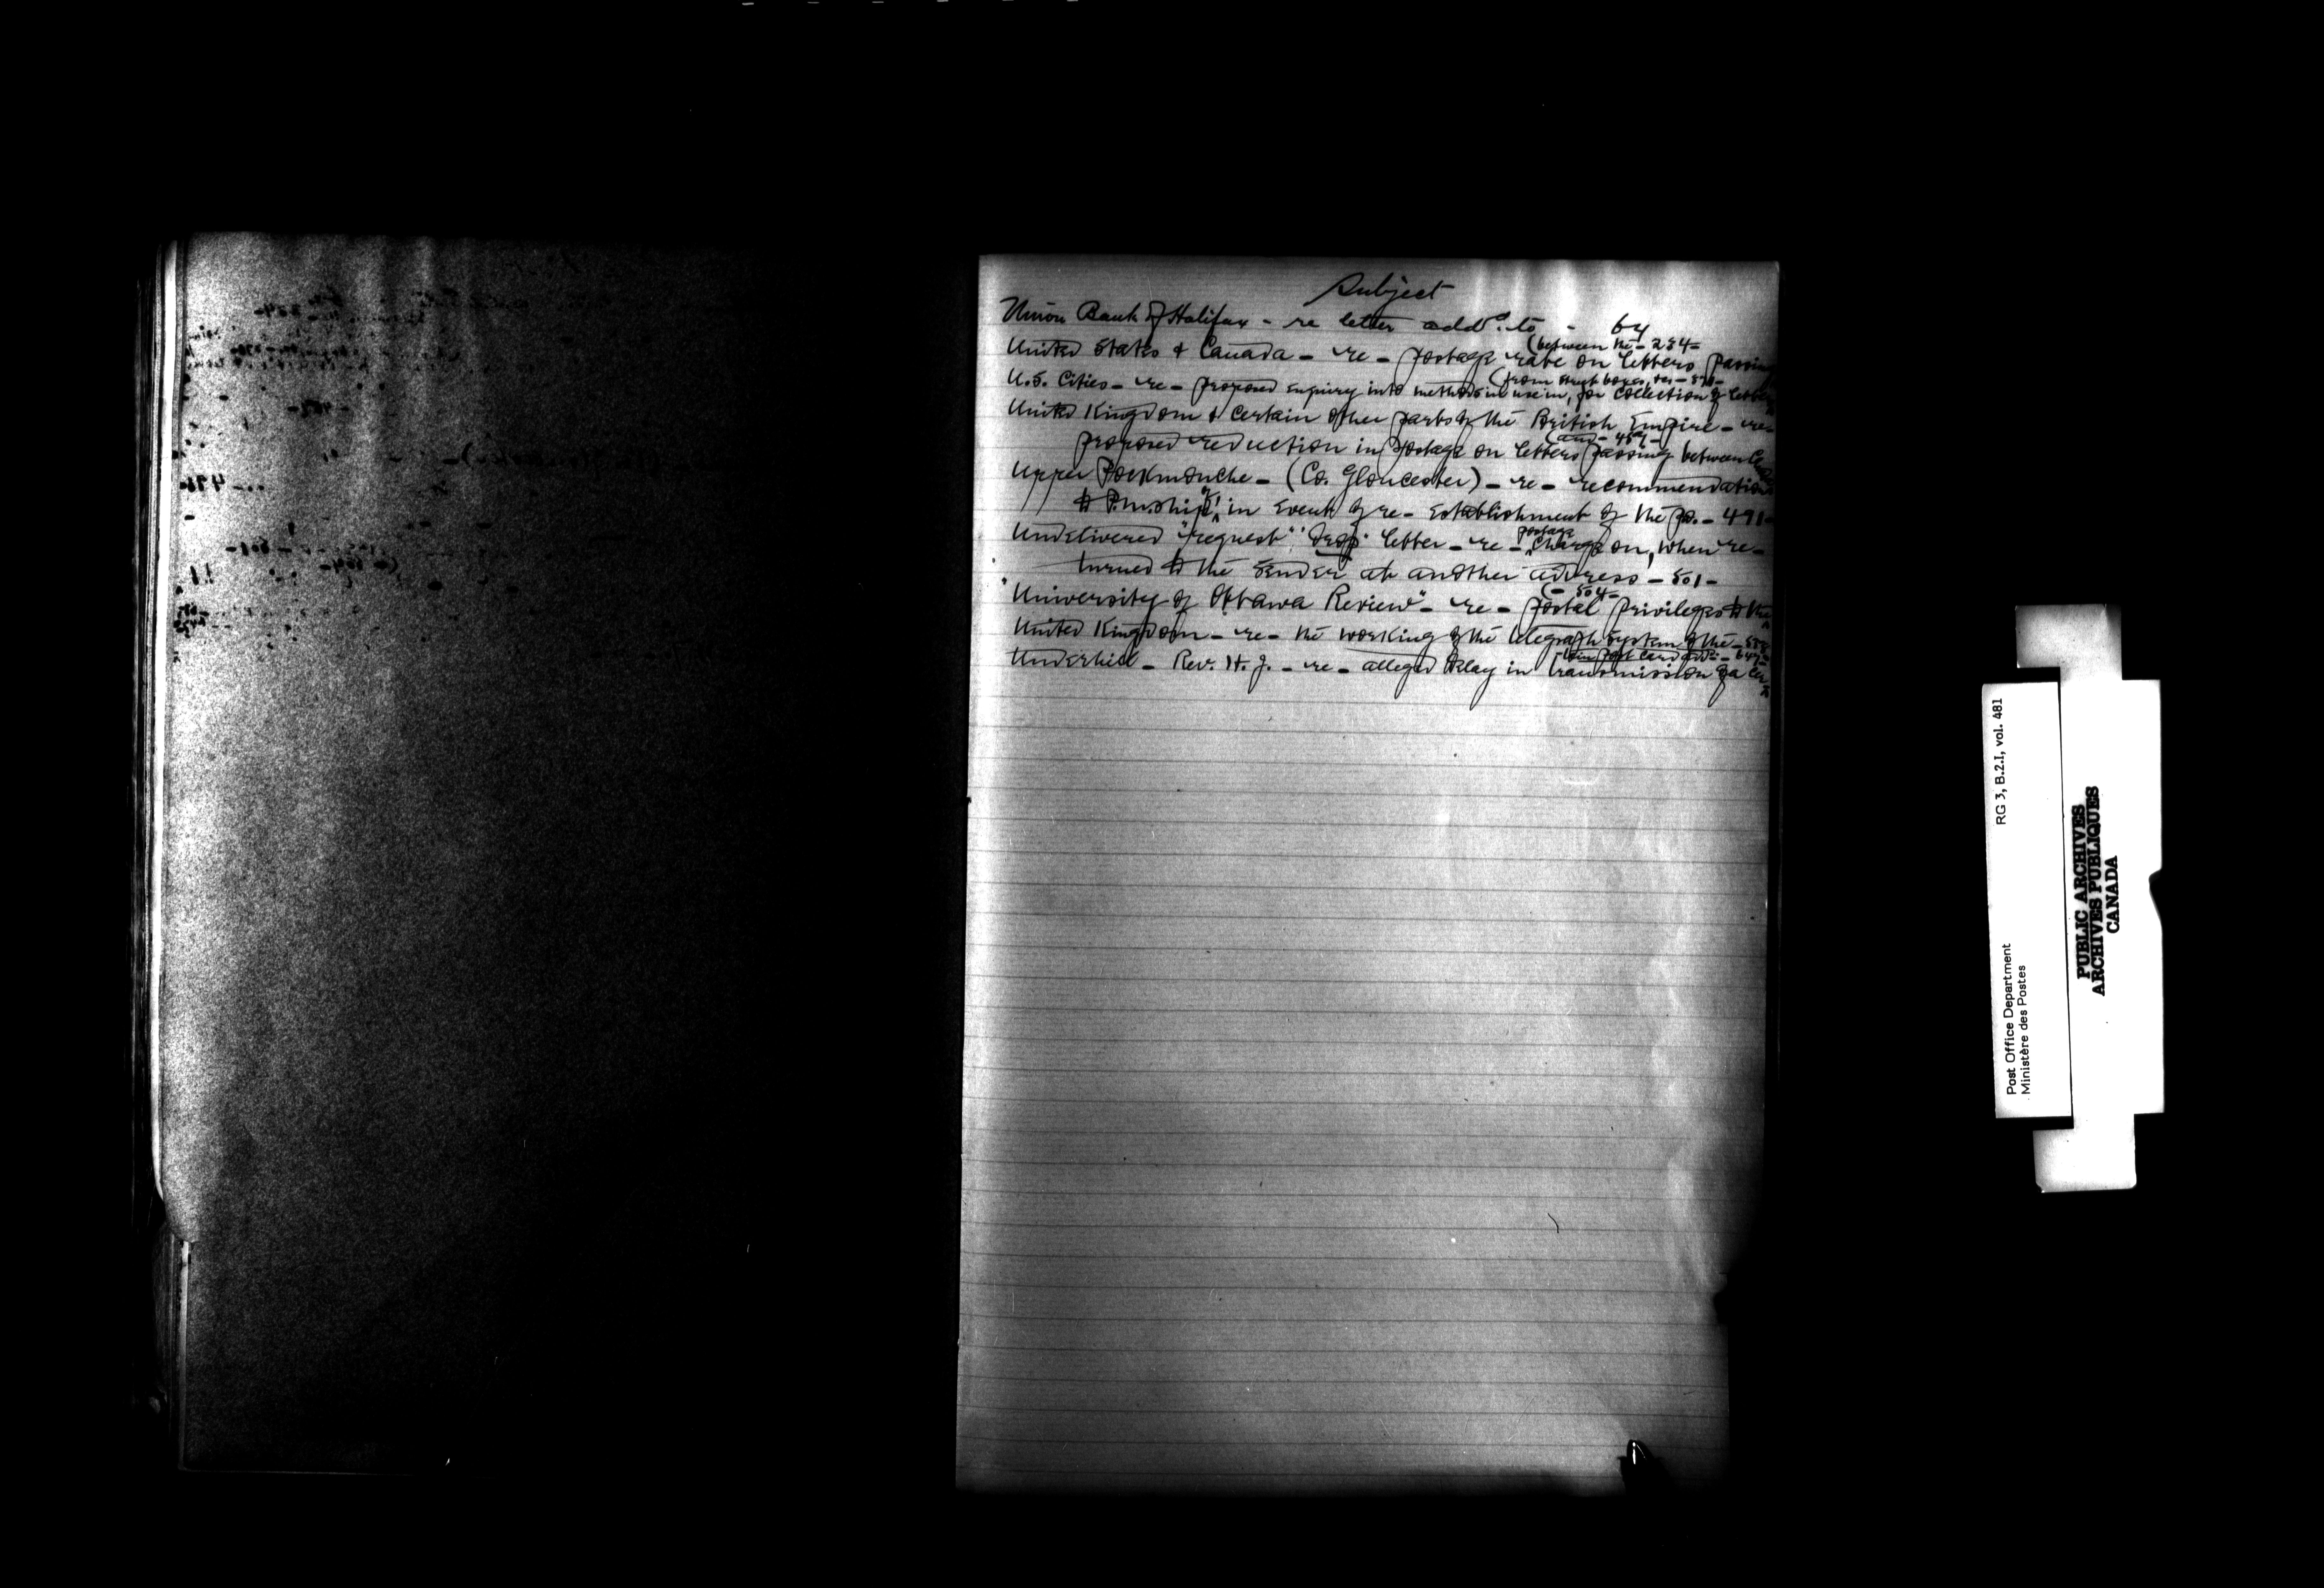 Subject
Union Bank of Halifax - re letter add'd. to - 64
(between the - 284 -
United States & Canada - re - postage rate on letters passing
(from street boxes, &c -
U.S. Cities - re - proposed enquiry into methods in use in, for collection of letters
United Kingdom & certain other parts of the British Empire - re -
(and - 459 -
proposed reduction in postage on letters passing between
Upper Pockmouche - (Co. Gloucester) - re - recommendation
to P.m.ship, in event of re-establishment of the po. - 491 -
postage
Undelivered "request" "drop" letter - re - charge on, when re-
turned to the sender at another address - 501 -
(- 504 -
"University of Ottawa Review" - re - postal privileges to the
United Kingdom - re - the working of the telegraph system of the -
Underhill - Rev. H. J. - re - alleged delay in transmission of a
RG 3, B.2.I, vol. 481
Post Office Department
Ministère des Postes
PUBLIC ARCHIVES
ARCHIVES PUBLIQUES
CANADA